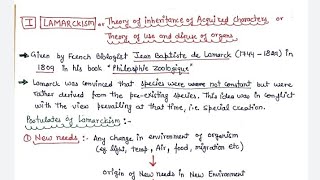 I LAMARCKISM or Theory of inheritance of Acquired characters or
Theory of use and disuse of organs
→ Given by French biologist Jean Baptiste de Lamarck (1744-1829) in
1809 in his book "Philosophie Zoologique"
→ Lamarck was convinced that species were not constant but were
rather derived from the pre-existing species. This idea was in conflict
with The view prevailing at that time, i.e. special creation.
Postulates of Lamarckism :-
① New needs :- Any change in environment of organism
(eg light, temp, Air, food, migration etc)
↓
Origin of New needs in New Environment